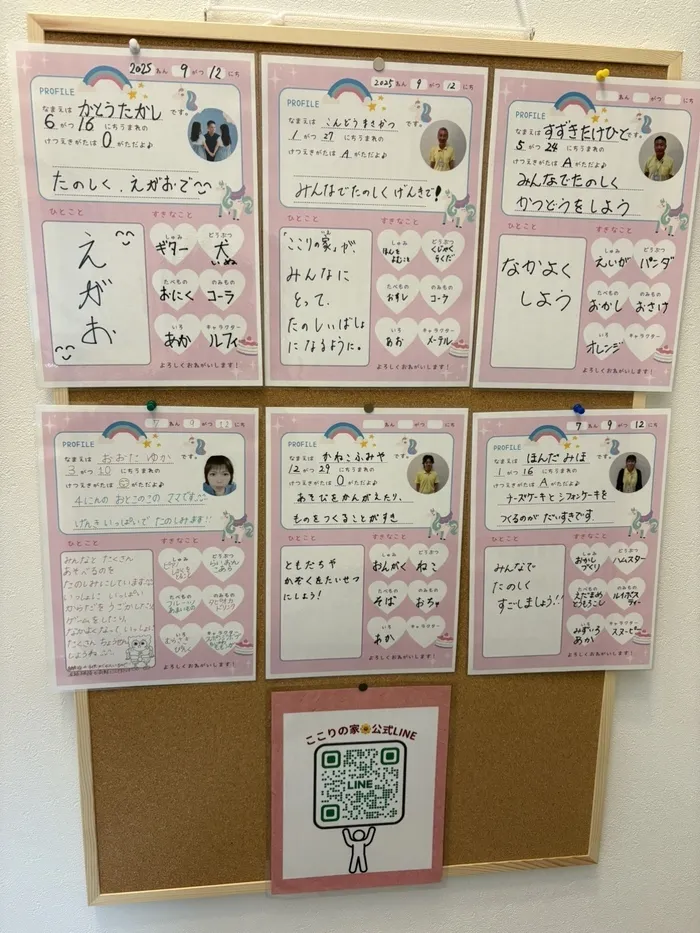 2025 ねん 9 がつ 12 にち
PROFILE
なまえは かとうたかし です。
6 がつ 16 にちうまれの
けつえきがたは O がただよ♪
たのしく、えがおで
ひとこと
えがお
すきなこと
しゅみ ギター
どうぶつ 犬 いぬ
たべもの おにく
のみもの コーラ
いろ あか
キャラクター ルフィ
よろしくおねがいします!
2025 ねん 9 がつ 12 にち
PROFILE
なまえは こんどうまさかつ です。
1 がつ 27 にちうまれの
けつえきがたは A がただよ♪
みんなでたのしくげんきで!
ひとこと
「ここりの家」が、
みんなに
とって、
たのしいばしょ
になるように。
すきなこと
しゅみ ほんをよむこと
どうぶつ
たべもの おすし
のみもの コーク
いろ あお
キャラクター メーテル
よろしくおねがいします!
ねん がつ にち
PROFILE
なまえは すずきたけひと です。
5 がつ 24 にちうまれの
けつえきがたは A がただよ♪
みんなでたのしく
かつどうをしよう
ひとこと
なかよく
しよう
すきなこと
しゅみ えいが
どうぶつ パンダ
たべもの おかし
のみもの おさけ
いろ オレンジ
キャラクター
よろしくおねがいします!
7 ねん 9 がつ 12 にち
PROFILE
なまえは おおた ゆか です。
3 がつ 10 にちうまれの
けつえきがたは がただよ♪
4にんの おとこのこの ママです
げんき いっぱいで たのしみます!!
ひとこと
みんなと たくさん
あそべるのを
たのしみにしています
いっしょに いっぱい
からだを うごかしたり
ゲームをしたり、
なかよくなって いっしょに
たくさん ちょうせん
しようね
すきなこと
しゅみ
どうぶつ らいおん
たべもの
のみもの
いろ
キャラクター
よろしくおねがいします!
ねん がつ にち
PROFILE
なまえは かねこふみや です。
12 がつ 29 にちうまれの
けつえきがたは O がただよ♪
あそびをかんがえたり、
ものをつくることがすき
ひとこと
ともだちや
かぞくをたいせつ
にしよう!
すきなこと
しゅみ おんがく
どうぶつ ねこ
たべもの そば
のみもの おちゃ
いろ あか
キャラクター
よろしくおねがいします!
7 ねん 9 がつ 12 にち
PROFILE
なまえは ほんだ みほ です。
1 がつ 16 にちうまれの
けつえきがたは A がただよ♪
チーズケーキと シフォンケーキを
つくるのが だいすきです
ひとこと
みんなで
たのしく
すごしましょう!!
すきなこと
しゅみ おかしづくり
どうぶつ ハムスター
たべもの えだまめ とうもろこし
のみもの ルイボスティー
いろ みずいろ あか
キャラクター スヌーピー
よろしくおねがいします!
ここりの家 公式LINE
LINE